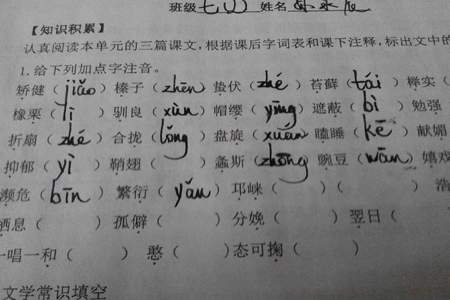 班级七 姓名
【知识积累】
认真阅读本单元的三篇课文,根据课后字词表和课下注释,标出文中的
1.给下列加点字注音。
矫健(jiǎo)榛子(zhēn)蛰伏(zhé)苔藓(tái)榉实(
橡栗(lì)驯良(xùn)帽缨(yīng)遮蔽(bì)勉强
折扇(zhé)合拢(lǒng)盘旋(xuán)瞌睡(kē)献媚
抑郁(yì)鞘翅( )螽斯(zhōng)豌豆(wān)嬉戏
濒危(bīn)繁衍(yǎn)邛崃( )( )浩
栖息( )孤僻( )分娩( )翌日(
一唱一和( )憨( )态可掬( )
文学常识填空